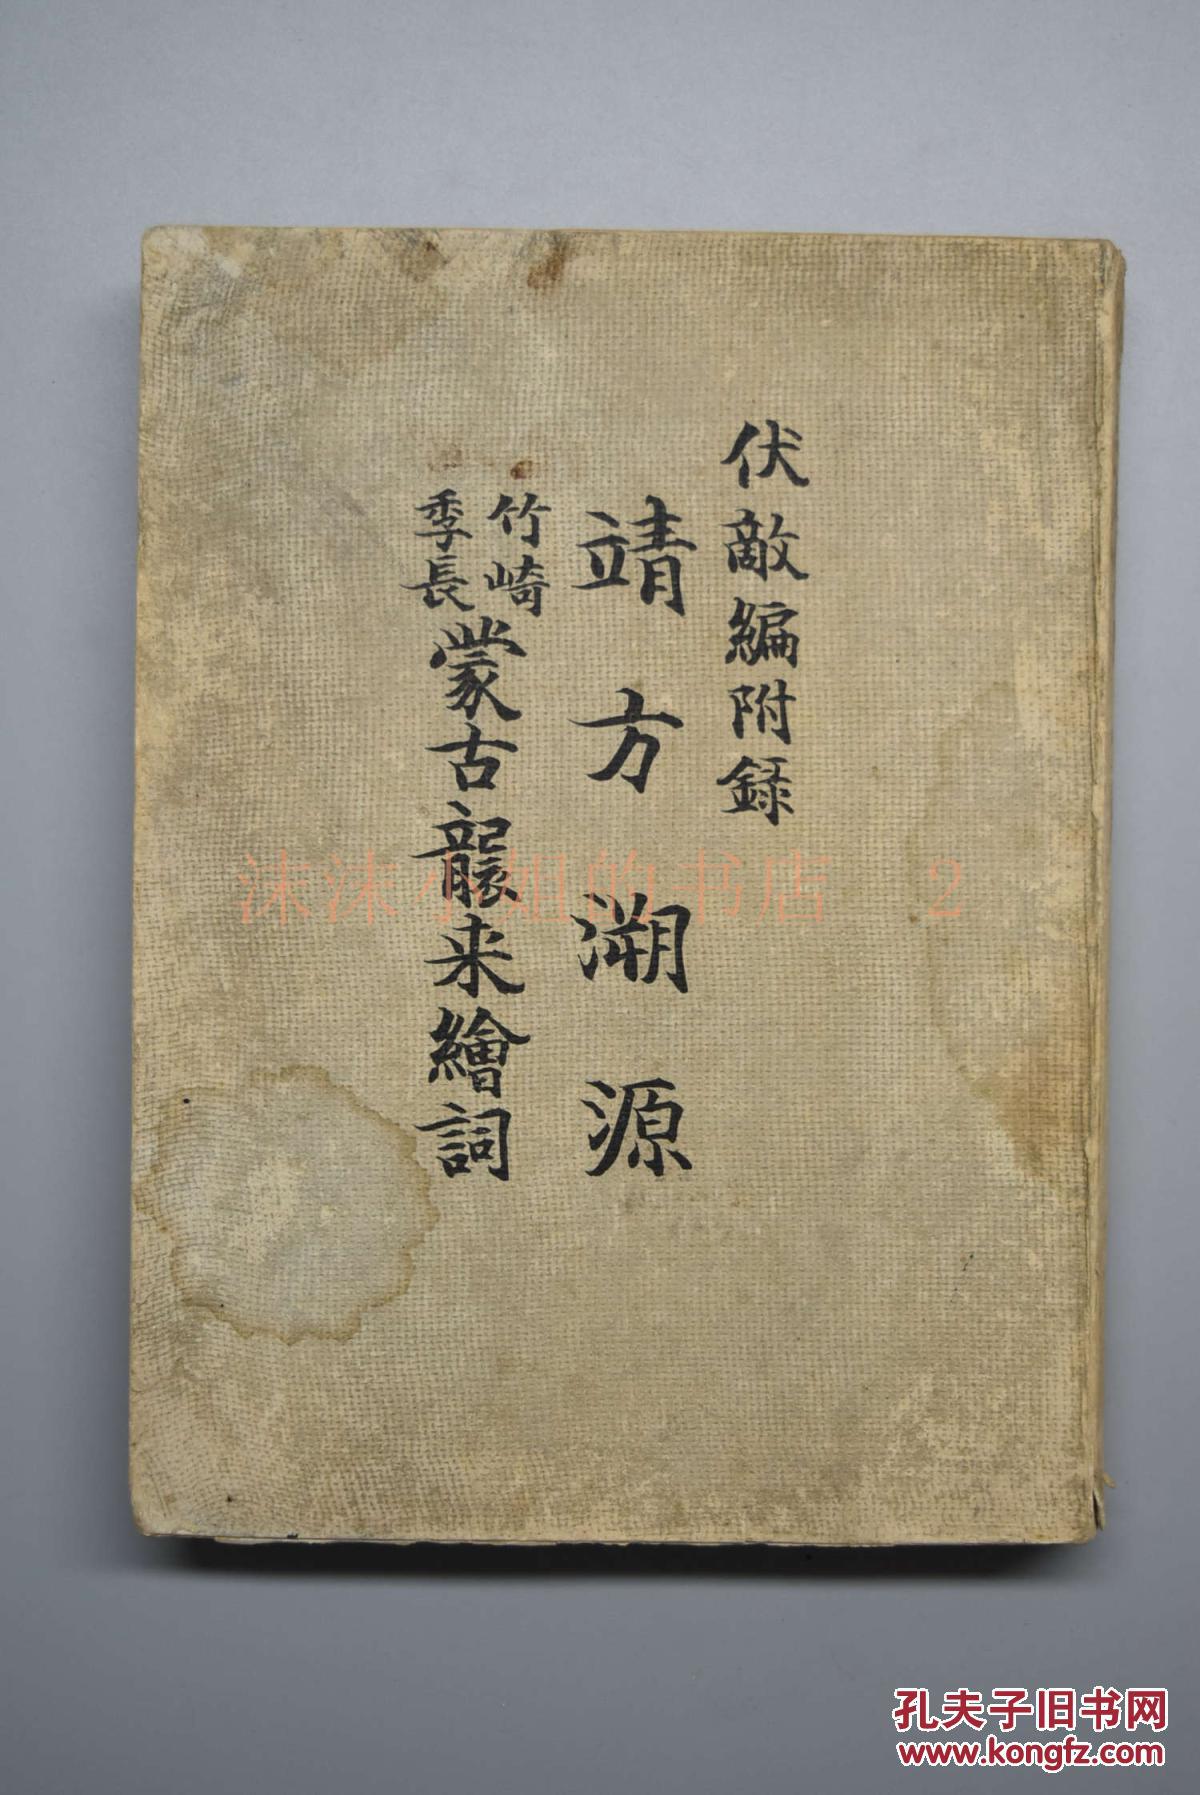 伏敵編附録
靖方溯源
竹崎
季長
蒙古襲来繪詞
沫沫小姐的书店 2
孔夫子旧书网
www.kongfz.com